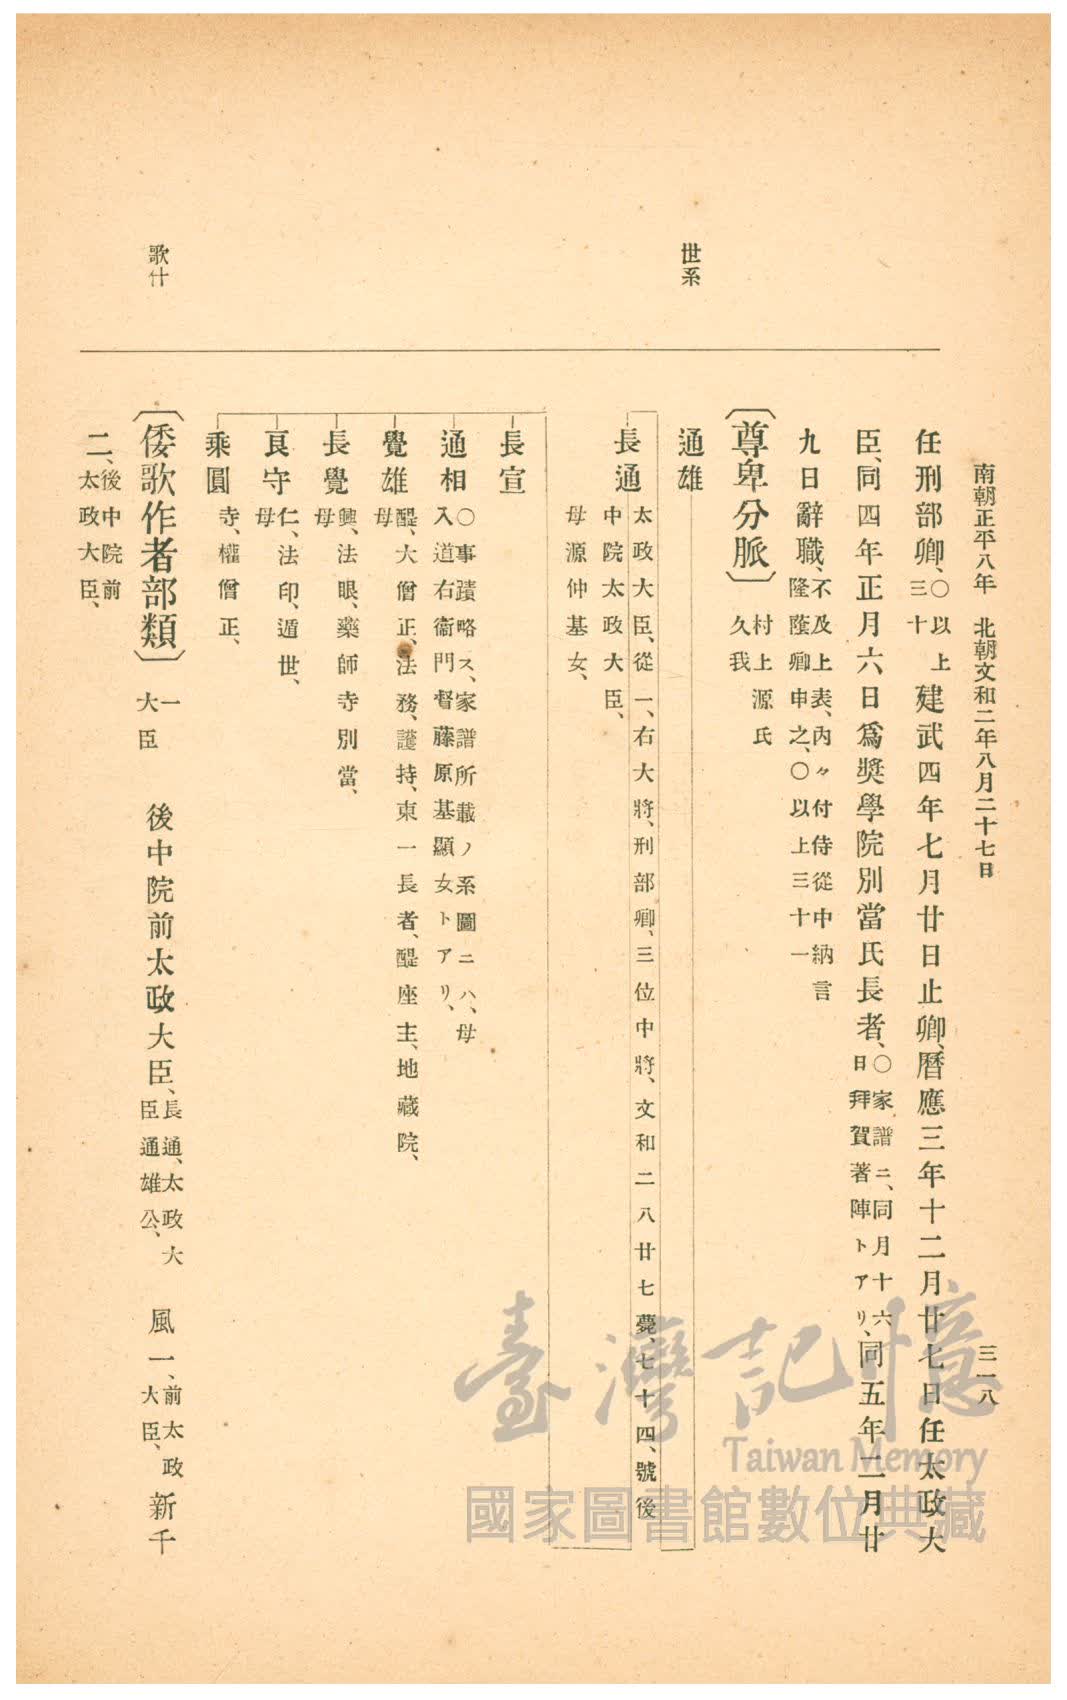 南朝正平八年　北朝文和二年八月二十七日
三一八
世系
歌什
任刑部卿、〇以上三十建武四年七月廿日止卿、曆應三年十二月廿七日任太政大
臣、同四年正月六日爲奬學院別當氏長者、〇家譜ニ、同月十六日拜賀著陣トアリ、同五年二月廿
九日辭職、不及上表、內々付侍從中納言隆蔭卿申之、〇以上三十一
〔尊卑分脈〕村上源氏久我
通雄
長通
太政大臣、從一、右大將、刑部卿、三位中將、文和二八廿七薨、七十四、號後
中院太政大臣、
母源仲基女、
長宣
通相
〇事蹟略ス、家譜所載ノ系圖ニハ、母
入道右衞門督藤原基顯女トアリ、
覺雄
醍、大僧正、法務、護持、東一長者、醍座主、地藏院、
母
長覺
興、法眼、藥師寺別當、
母
良守
仁、法印、遁世、
母
乘圓
寺、權僧正、
〔倭歌作者部類〕一大臣　後中院前太政大臣、長通、太政大臣通雄公、　風一、前太政大臣、新千
二、後中院前太政大臣、
臺灣記憶
Taiwan Memory
國家圖書館數位典藏